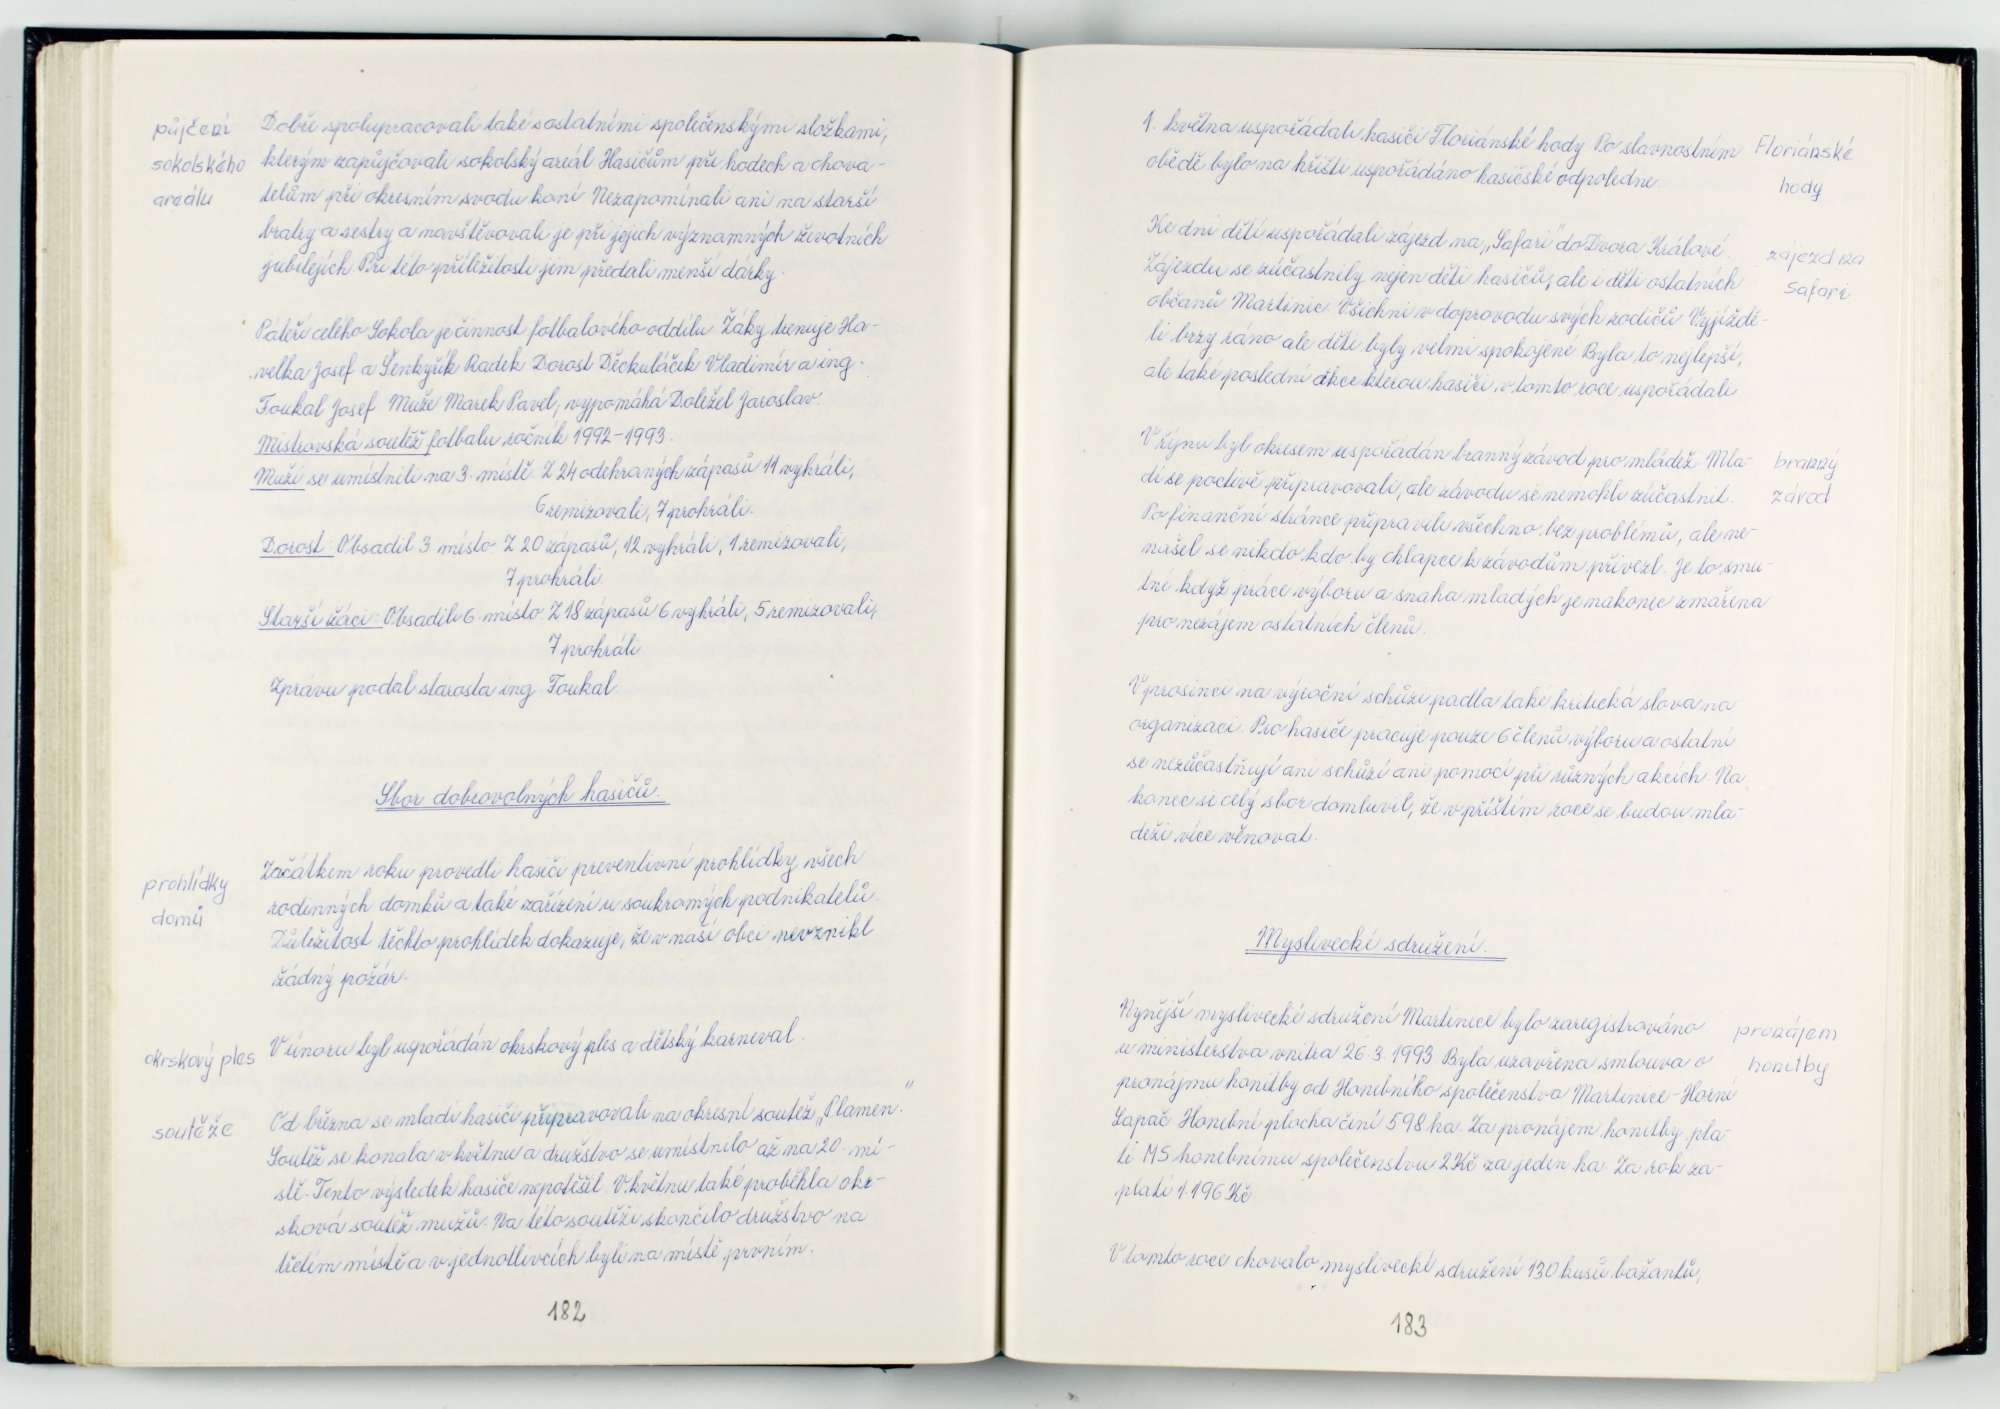 půjčení
sokolského
areálu
Dobře spolupracovali také s ostatními společenskými složkami,
kterým zapůjčovali sokolský areál Hasičům při hodech a chova-
telům při okresním svodu koní Nezapomínali ani na starší
bratry a sestry a navštěvovali je při jejich významných životních
jubilejích Při této příležitosti jim předali menší dárky.
Páteří celého Sokola je činnost fotbalového oddílu Žáky trenuje Ha-
velka Josef a Šenkyřík Radek Dorost Děckuláček Vladimír a ing.
Foukal Josef Muže Marek Pavel, vypomáhá Doležel Jaroslav.
Mistrovská soutěž fotbalu ročník 1992-1993.
Muži se umístnili na 3. místě. Z 24 odehraných zápasů 11 vyhráli,
6 remizovali, 7 prohráli.
Dorost: Obsadil 3. místo Z 20 zápasů, 12 vyhráli, 1 remizovali,
7 prohráli
Starší žáci: Obsadili 6. místo Z 18 zápasů 6 vyhráli, 5 remizovali,
7 prohráli
Zprávu podal starosta ing. Foukal.
Sbor dobrovolných hasičů.
prohlídky
domů
Začátkem roku provedli hasiči preventivní prohlídky všech
rodinných domků a také zařízení u soukromých podnikatelů.
Důležitost těchto prohlídek dokazuje, že v naší obci nevznikl
žádný požár.
okrskový ples
V únoru byl uspořádán okrskový ples a dětský karneval.
soutěže
Od března se mladí hasiči připravovali na okresní soutěž „Plamen."
Soutěž se konala v květnu a družstvo se umístnilo až na 20. mí-
stě. Tento výsledek hasiče nepotěšil. V květnu také proběhla okr-
sková soutěž mužů. Na této soutěži skončilo družstvo na
třetím místě a v jednotlivcích byli na místě prvním.
182
1. května uspořádali hasiči Floriánské hody Po slavnostním
obědě bylo na hřišti uspořádáno hasičské odpoledne.
Floriánské
hody
Ke dni dětí uspořádali zájezd na „Safari" do Dvora Králové.
Zájezdu se zúčastnily nejen děti hasičů, ale i děti ostatních
občanů Martinic Všichni v doprovodu svých rodičů Vyjíždě-
li brzy ráno ale děti byly velmi spokojené Byla to nejlepší,
ale také poslední akce kterou hasiči v tomto roce uspořádali
zájezd na
Safari
V říjnu byl okresem uspořádán branný závod pro mládež Mla-
dí se poctivě připravovali, ale závodu se nemohli zúčastnit.
Po finanční stránce připravili všechno bez problémů, ale ne-
našel se nikdo kdo by chlapce k závodům přivezl. Je to smu-
tné když práce výboru a snaha mladých je nakonec zmařena
pro nezájem ostatních členů.
branný
závod
V prosinci na výroční schůzi padla také kritická slova na
organizaci. Pro hasiče pracuje pouze 6 členů výboru a ostatní
se nezůčastňují ani schůzí ani pomoci při různých akcích. Na
konec se celý sbor domluvil, že v příštím roce se budou mla-
deži více věnovat.
Myslivecké sdružení.
Nynější myslivecké sdružení Martinice bylo zaregistrováno
u ministerstva vnitra 26.3.1993 Byla uzavřena smlouva o
pronájmu honitby od Honebního společenstva Martinice-Horní
Lapač Honební plocha činí 598 ha. Za pronájem honitby pla-
tí MS honebnímu společenstvu 2 Kč za jeden ha Za rok za-
platí 1 196 Kč
pronájem
honitby
V tomto roce chovalo myslivecké sdružení 130 kusů bažantů,
183